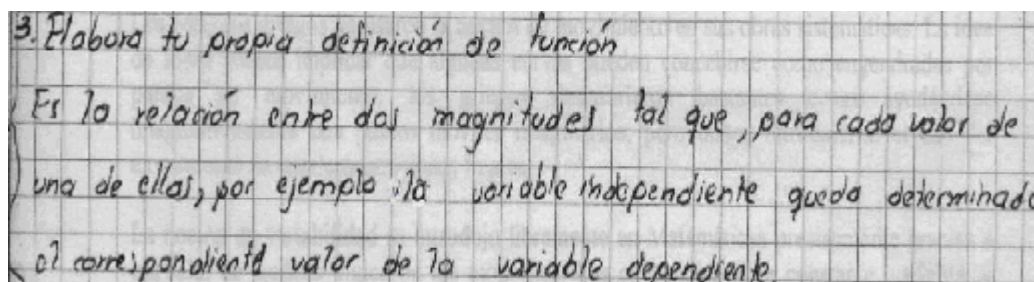 3. Elabora tu propia definición de función
Es la relación entre dos magnitudes tal que, para cada valor de
una de ellas, por ejemplo la variable independiente queda determinado
el correspondiente valor de la variable dependiente.